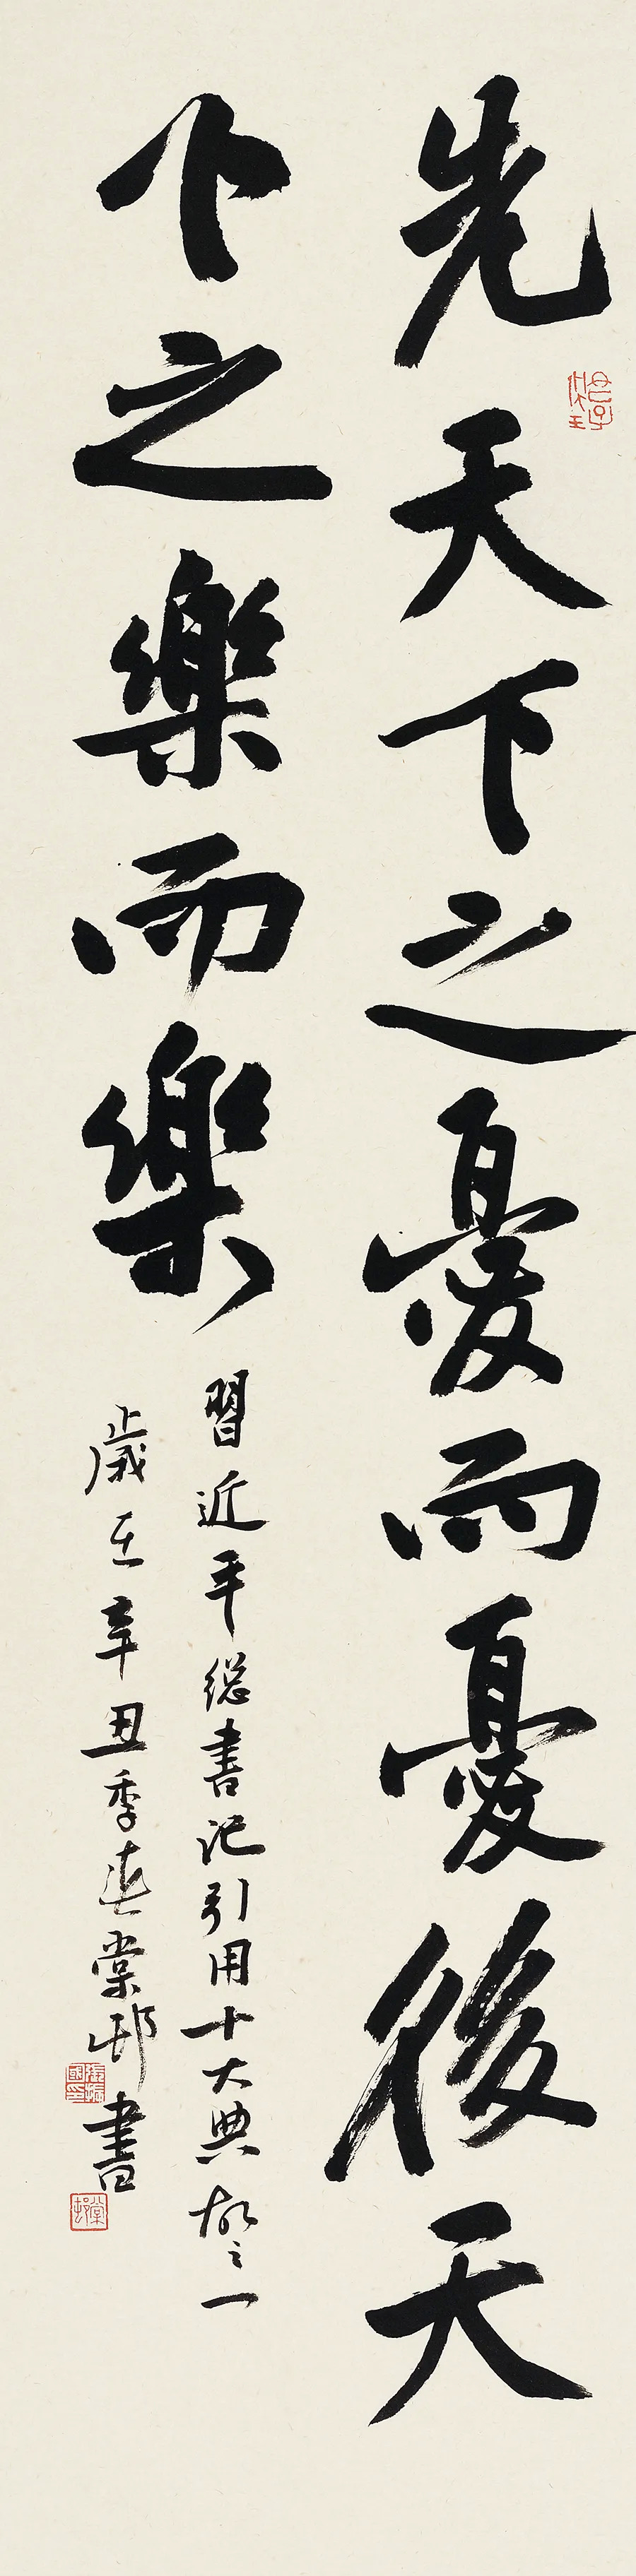 先天下之憂而憂後天
下之樂而樂
習近平總書記引用十大典故之一
歲在辛丑季春棠邨書